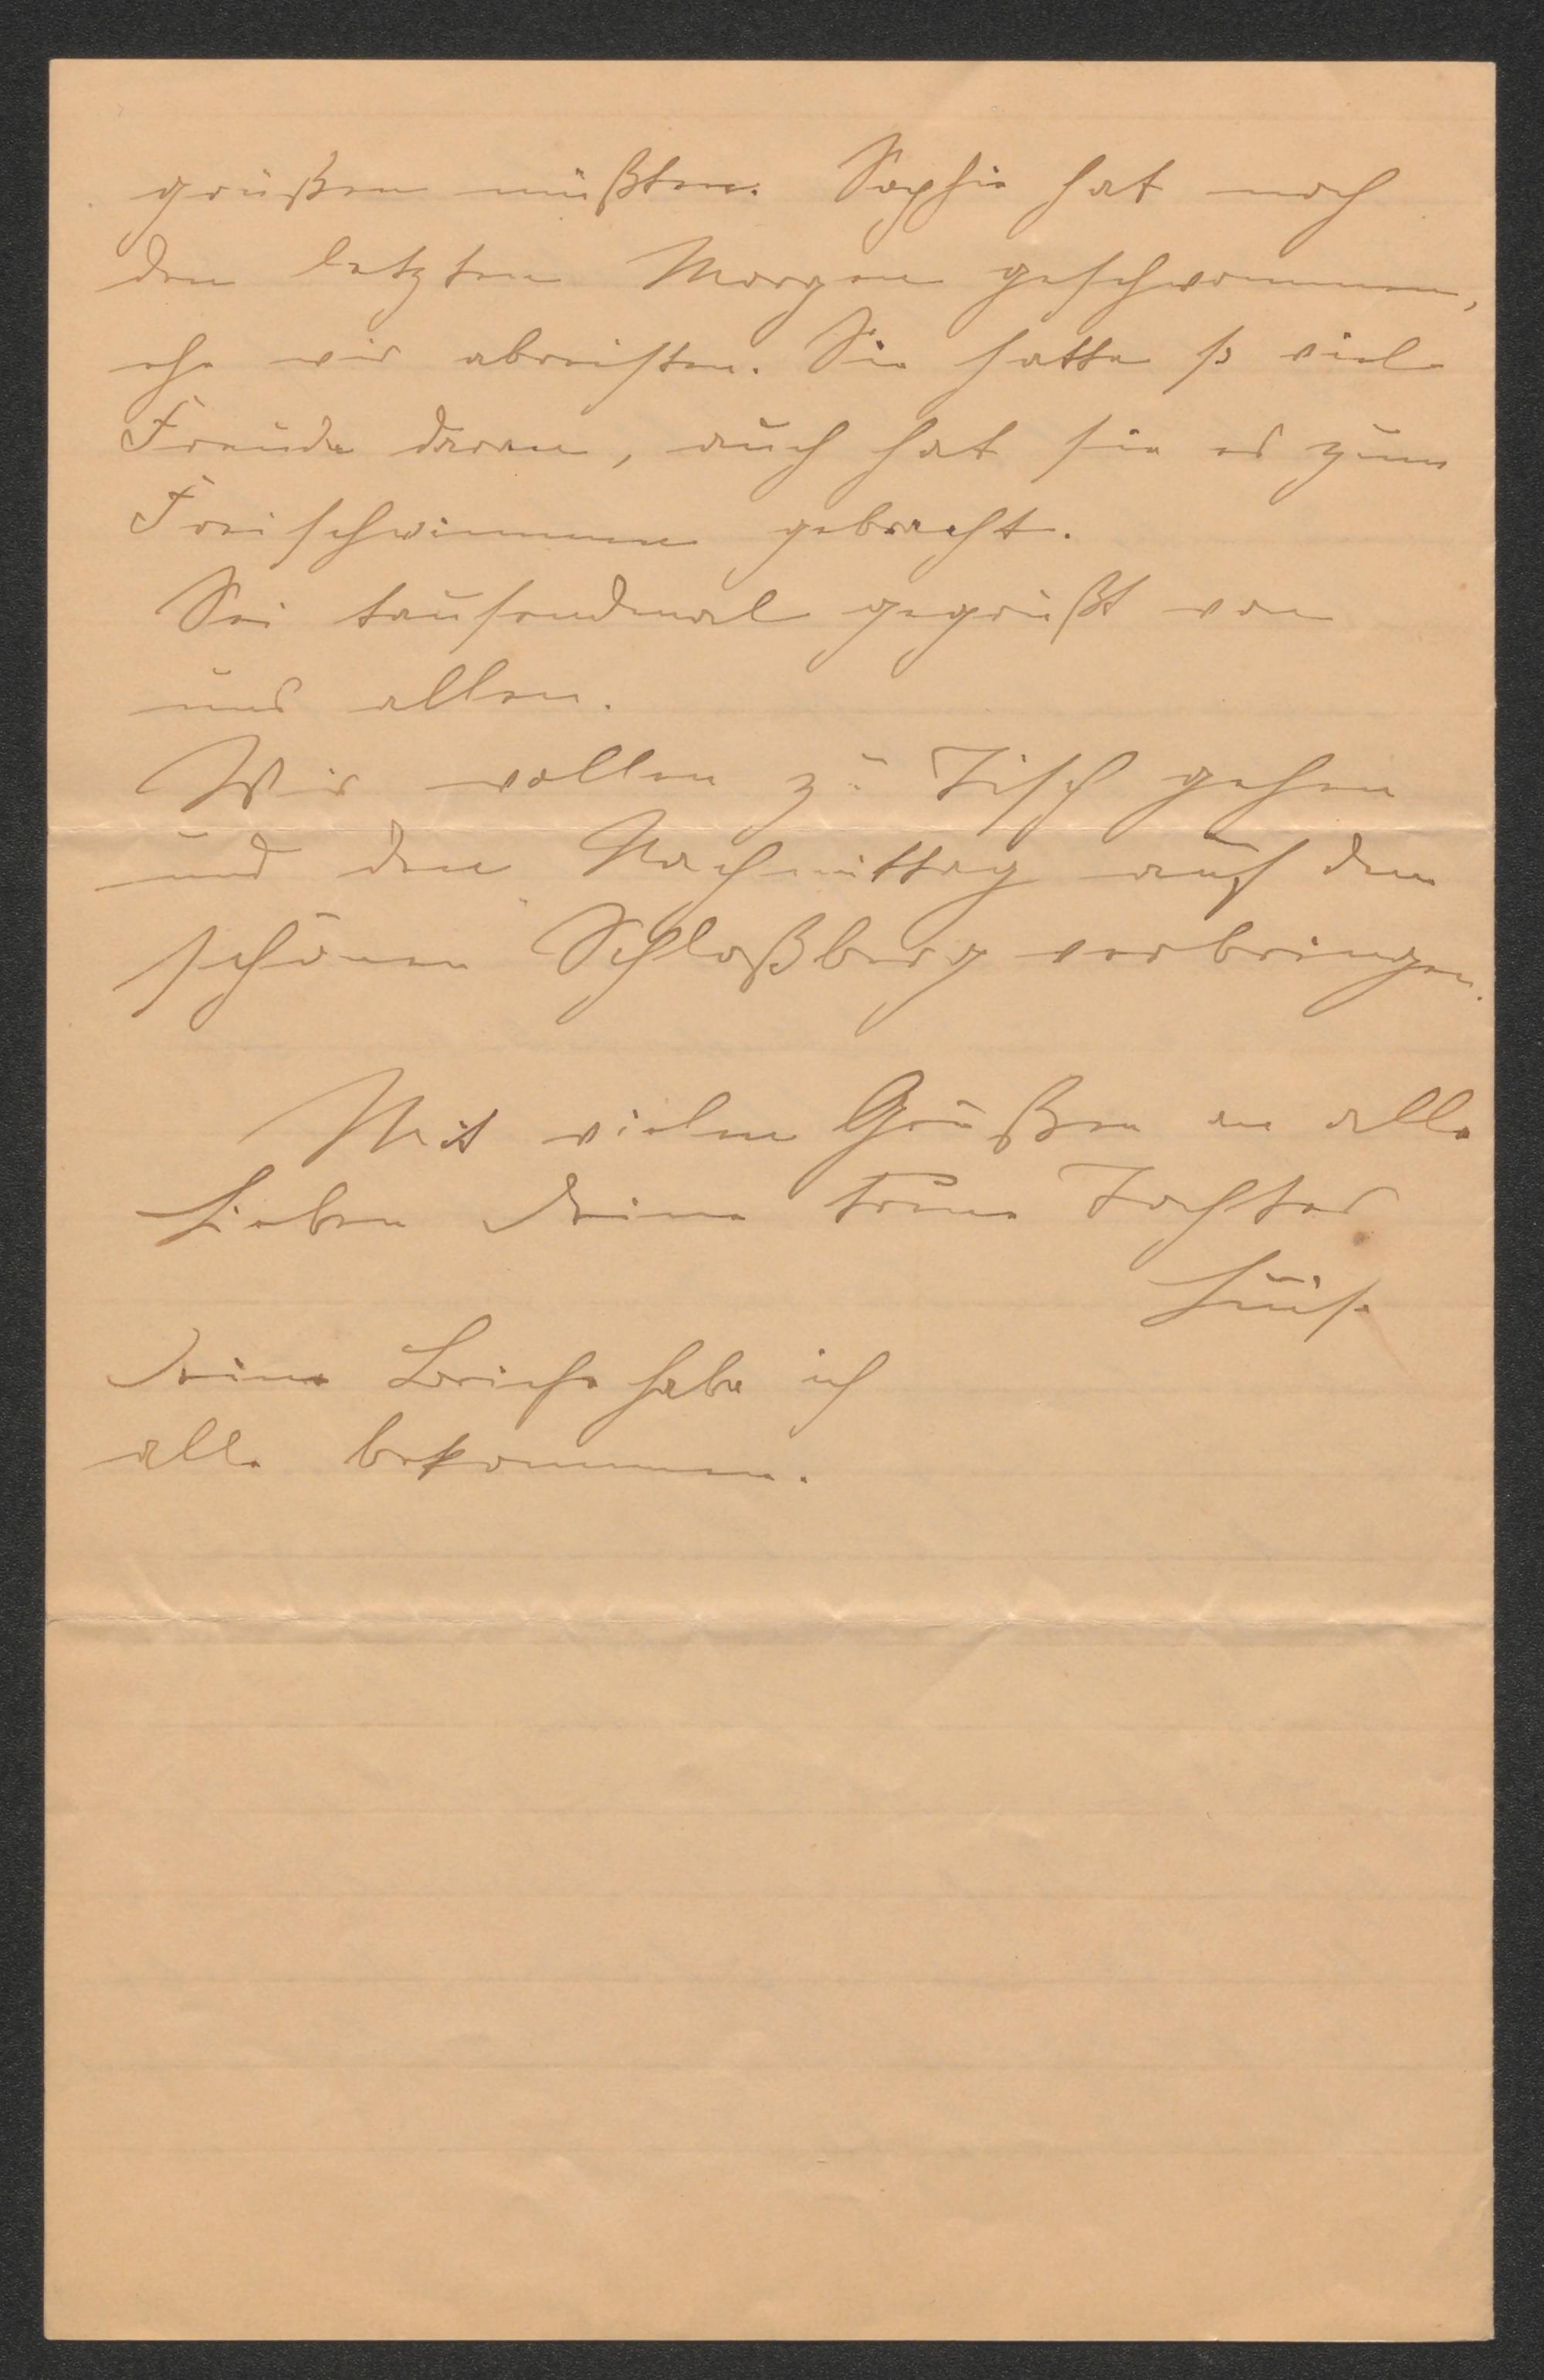 grüßen müßten. Sophie hat noch
den letzten Morgen geschwommen,
ehe wir abreisten. Sie hatte so viel
Freude daran, auch hat sie es zum
Freischwimmen gebracht.
Sei tausendmal gegrüßt von
uns allen.
Wir wollen zu Tisch gehen
und den Nachmittag auf dem
schönen Schloßberg verbringen.
Mit vielen Grüßen an alle
Lieben Deine treue Tochter
Luise
Deine Briefe habe ich
alle bekommen.